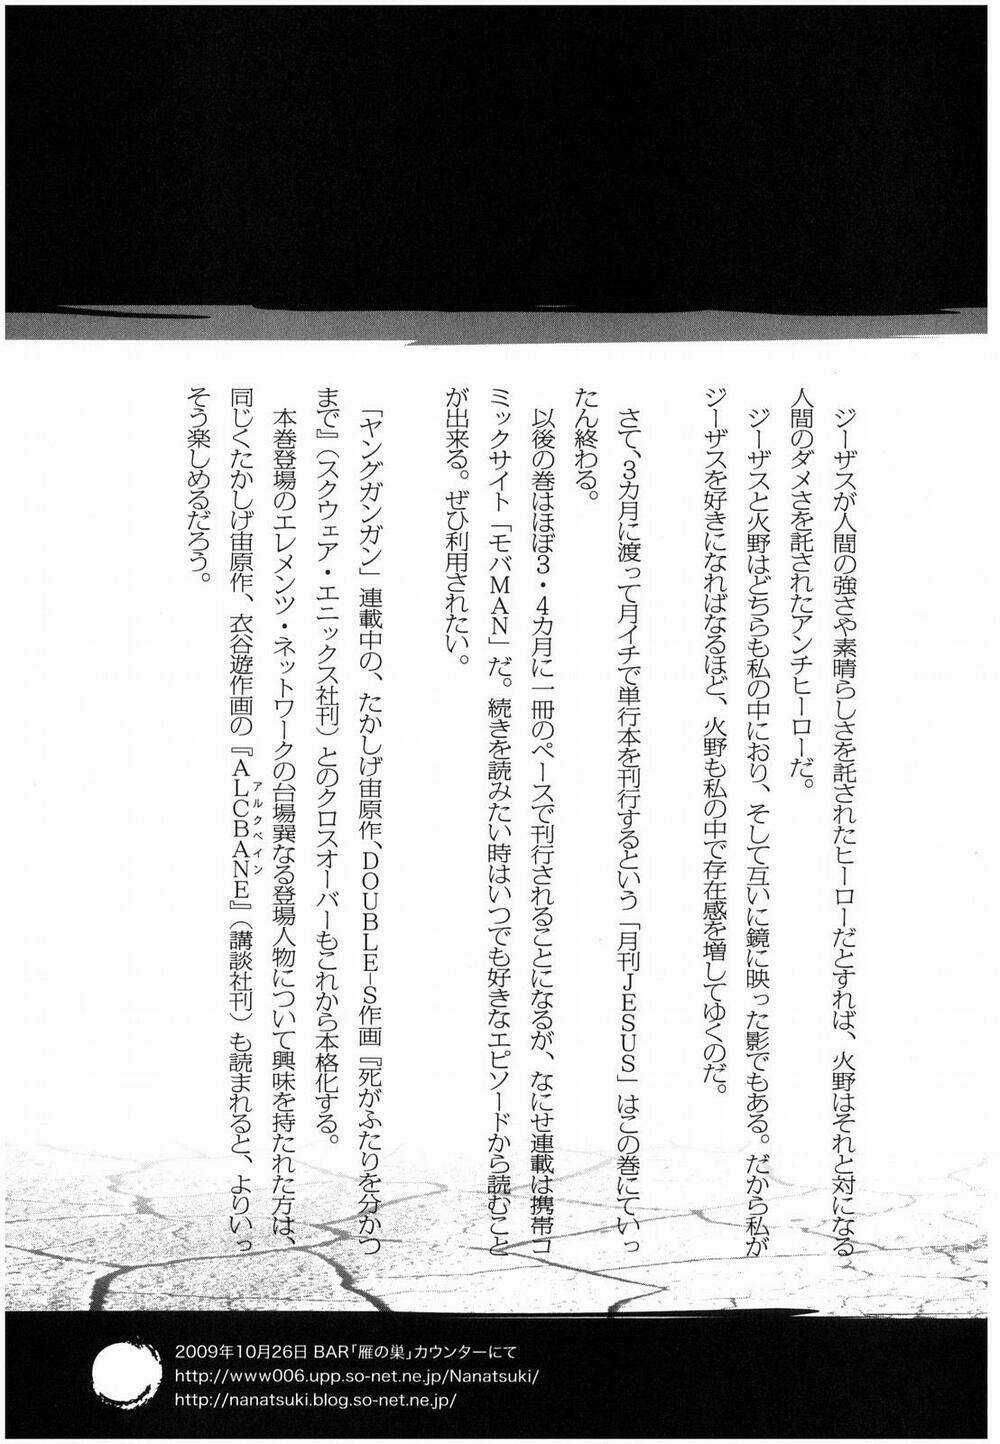 ジーザスが人間の強さや素晴らしさを託されたヒーローだとすれば、火野はそれと対になる
人間のダメさを託されたアンチヒーローだ。
ジーザスと火野はどちらも私の中におり、そして互いに鏡に映った影でもある。だから私が
ジーザスを好きになればなるほど、火野も私の中で存在感を増してゆくのだ。
さて、3カ月に渡って月イチで単行本を刊行するという「月刊JESUS」はこの巻にていっ
たん終わる。
以後の巻はほぼ3・4カ月に一冊のペースで刊行されることになるが、なにせ連載は携帯コ
ミックサイト「モバMAN」だ。続きを読みたい時はいつでも好きなエピソードから読むこと
が出来る。ぜひ利用されたい。
「ヤングガンガン」連載中の、たかしげ宙原作、DOUBLE-S作画『死がふたりを分かつ
まで』（スクウェア・エニックス社刊）とのクロスオーバーもこれから本格化する。
本巻登場のエレメンツ・ネットワークの台場巽なる登場人物について興味を持たれた方は、
同じくたかしげ宙原作、衣谷遊作画の『ALCBANE』（講談社刊）も読まれると、よりいっ
アルクベイン
そう楽しめるだろう。
2009年10月26日 BAR「雁の巣」カウンターにて
http://www006.upp.so-net.ne.jp/Nanatsuki/
http://nanatsuki.blog.so-net.ne.jp/